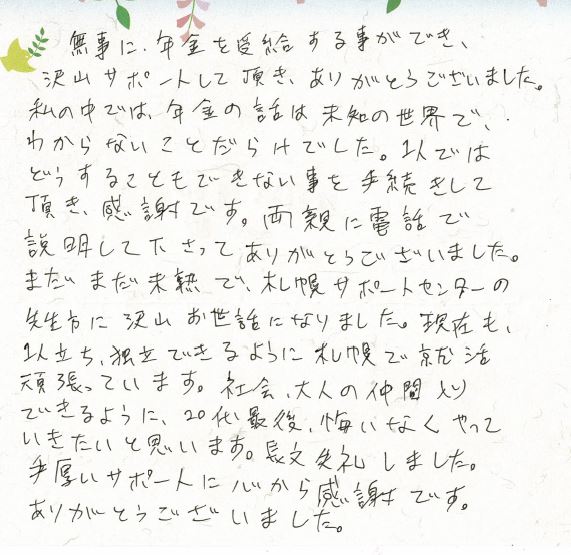 無事に、年金を受給する事ができ、
沢山サポートして頂き、ありがとうございました。
私の中では、年金の話は未知の世界で、
わからないことだらけでした。1人では
どうすることもできない事を手続きして
頂き、感謝です。両親に電話で
説明して下さってありがとうございました。
まだまだ未熟で、札幌サポートセンターの
先生方に沢山お世話になりました。現在も、
1人立ち、独立できるように札幌で就活
頑張っています。社会、大人の仲間入り
できるように、20代最後、悔いなくやって
いきたいと思います。長文失礼しました。
手厚いサポートに心から感謝です。
ありがとうございました。